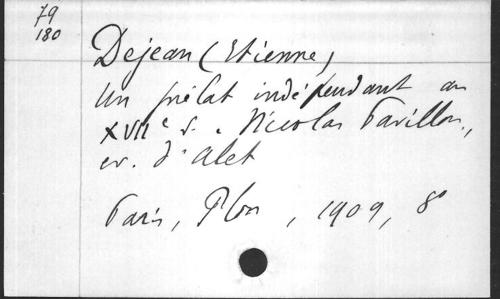 79
180
Dejean (Etienne)
Un prélat indépendant au
XVIIe s. Nicolas Pavillon,
ev. d'Alet
Paris, Plon, 1909, 8°